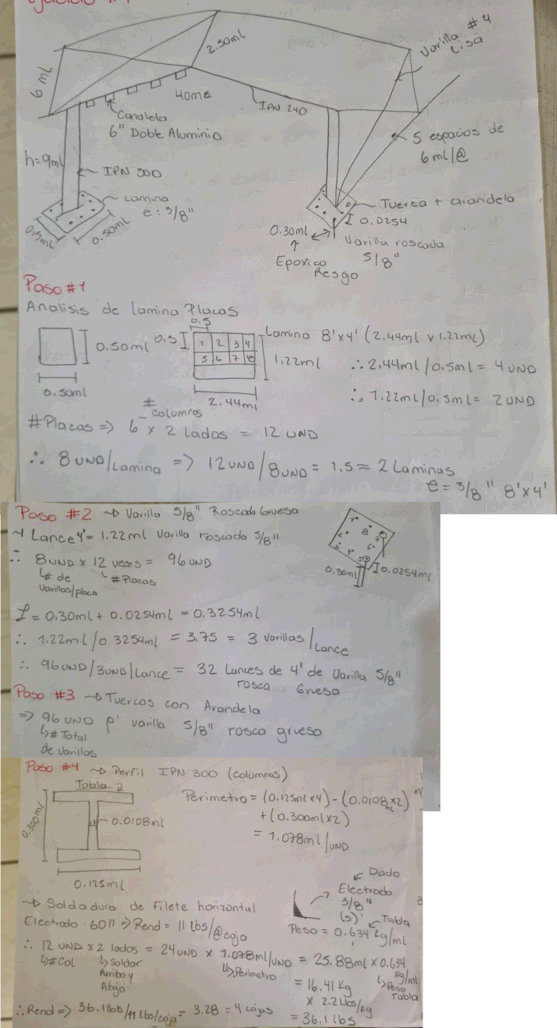 Ejercicio #1
2.50ml
Varilla #4
Lisa
6 ml
40ml
IPN 240
Canaleta
6" Doble Aluminio
5 espacios de
6ml/@
h=9ml
IPN 300
Lamina
e: 3/8"
0.5ml
0.50ml
Tuerca + arandela
I 0.0254
0.30ml
Varilla roscada
5/8"
Epoxico
Resgo
Paso #1
Analisis de Lamina Placas
0.50ml
0.50ml
0.5
0.5
1 2 3 4
5 6 7 8
1.22ml
2.44ml
Lamina 8'x4' (2.44ml x 1.22ml)
∴ 2.44ml/0.5ml = 4 UND
∴ 1.22ml/0.5ml = 2 UND
# columnas
#Placas => 6 x 2 lados = 12 UND
∴ 8 UND/Lamina => 12 UND/8 UND = 1.5 ≈ 2 Laminas
e = 3/8" 8'x4'
Paso #2 → Varilla 5/8" Roscada Gruesa
→ Lance 4' = 1.22ml Varilla roscada 5/8"
∴ 8 UND x 12 veces = 96 UND
↳ # de Varillas/placa
↳ #Placas
0.30ml
I 0.0254ml
L = 0.30ml + 0.0254ml = 0.3254ml
∴ 1.22ml/0.3254ml = 3.75 = 3 varillas/Lance
∴ 96 UND/3 UND/Lance = 32 Lances de 4' de Varilla 5/8"
rosca Gruesa
Paso #3 → Tuercas con Arandela
=> 96 UND p' varilla 5/8" rosca grueso
↳ # Total
de Varillas
Paso #4 → Perfil IPN 300 (columnas)
Tabla 2
0.300ml
0.0108ml
0.125ml
Perimetro = (0.125ml x 4) - (0.0108ml x 2)
+ (0.300ml x 2)
= 1.078ml/UND
→ Soldadura de Filete horizontal
Electrodo 6011 => Rend = 11 Lbs/@caja
Dado
Electrodo
3/8"
(s)
Tabla
Peso = 0.634 Kg/ml
∴ 12 UND x 2 lados = 24 UND x 1.078ml/UND = 25.88ml x 0.634 Kg/ml
↳ #Col
↳ Soldar
Arriba y
Abajo
↳ Perimetro
↳ Peso
Tabla
= 16.41 Kg
x 2.2 Lbs/Kg
= 36.1 Lbs
∴ Rend => 36.1 lbs/11 Lbs/caja = 3.28 = 4 cajas